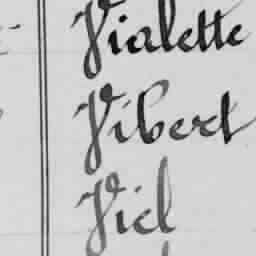 Vialette
Vibert
Viel